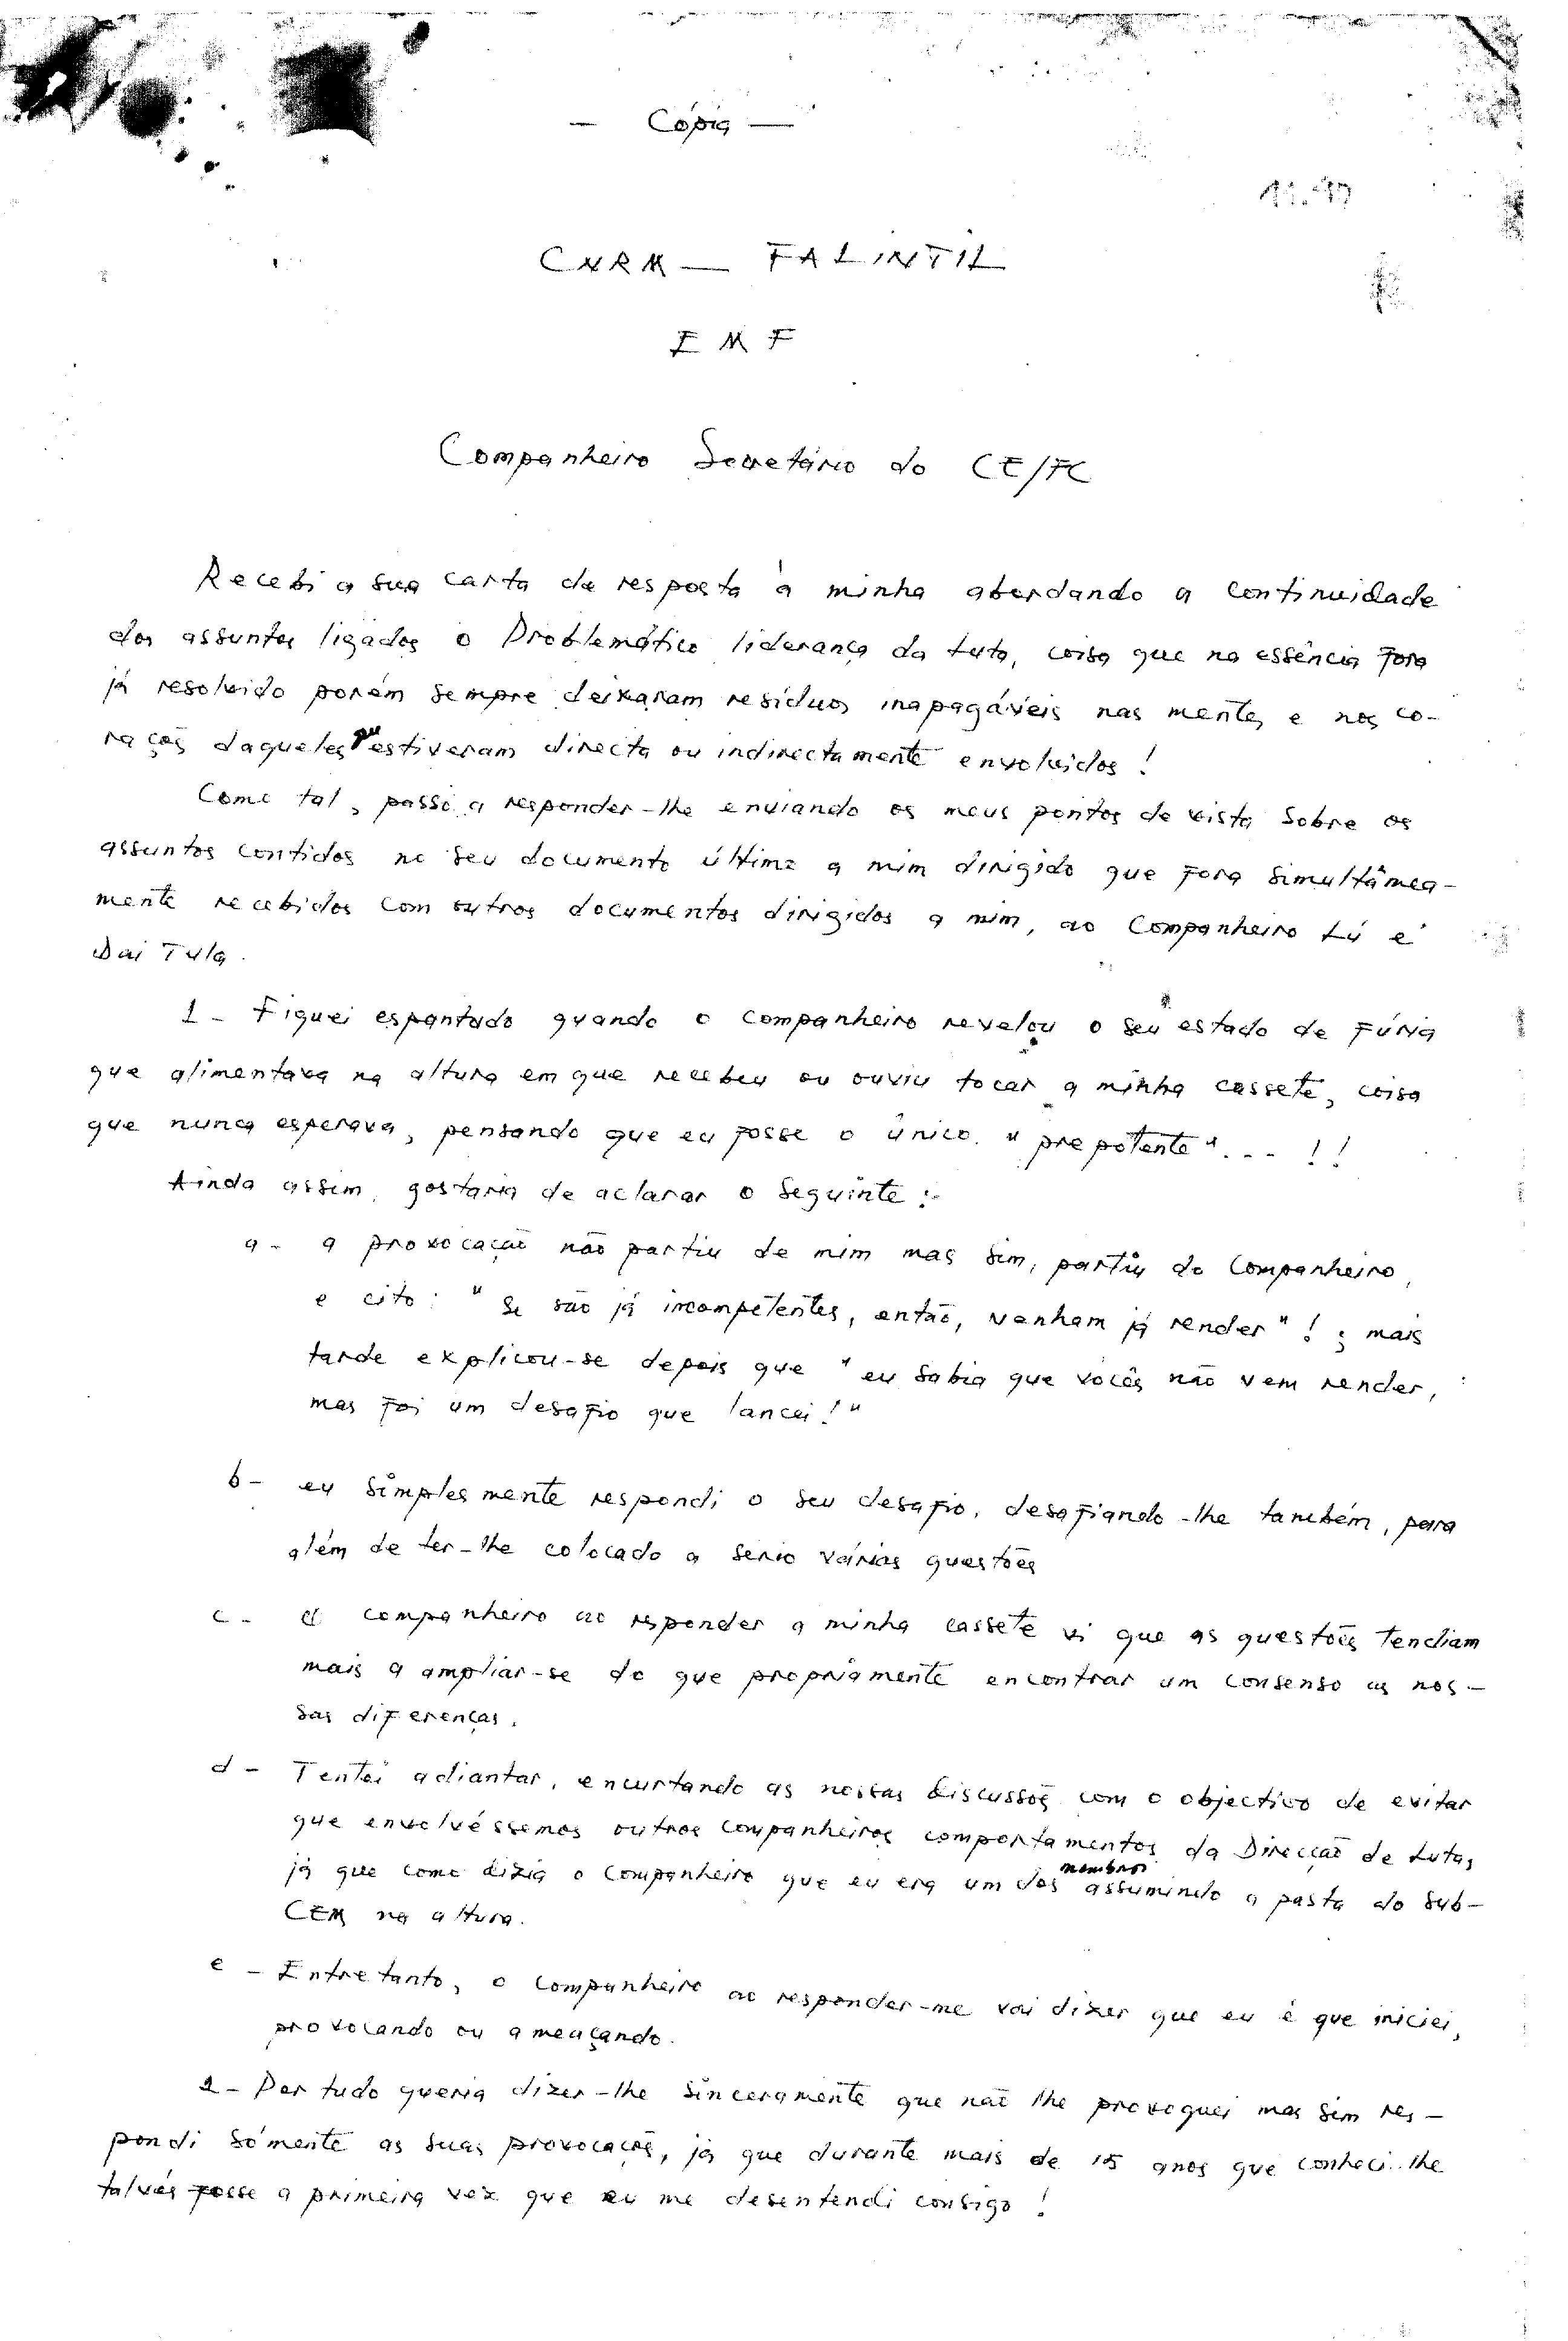 — Cópia —
CNRM — FALINTIL
E M F
Companheiro Secretário do CE/FC
Recebi a sua carta de resposta à minha abordando a continuidade
dos assuntos ligados o Problemático liderança da Luta, coisa que na essência fora
já resolvido porém sempre deixaram resíduos inapagáveis nas mentes e nos co-
rações daqueles que estiveram directa ou indirectamente envolvidos !
Como tal, passo a responder-lhe enviando os meus pontos de vista sobre os
assuntos contidos no seu documento último a mim dirigido que fora simultânea-
mente recebidos com outros documentos dirigidos a mim, ao Companheiro Lú e
Dai Tula.
1 - Fiquei espantado quando o companheiro revelou o seu estado de fúria
que alimentava na altura em que recebeu ou ouviu tocar a minha cassete, coisa
que nunca esperava, pensando que eu fosse o único "prepotente"... !!
Ainda assim, gostaria de aclarar o seguinte :
a - a provocação não partiu de mim mas sim, partiu do Companheiro,
e cito: "Se são já incompetentes, então, venham já render" ! ; mais
tarde explicou-se depois que "eu sabia que vocês não vem render,
mas foi um desafio que lancei !"
b - eu simplesmente respondi o seu desafio, desafiando-lhe também, para
além de ter-lhe colocado a sério várias questões
c - O companheiro ao responder a minha cassete vi que as questões tendiam
mais a ampliar-se do que propriamente encontrar um consenso as nos-
sas diferenças.
d - Tentei adiantar, encurtando as nossas discussões com o objectivo de evitar
que envolvéssemos outros companheiros comportamentos da Direcção de Luta,
já que como dizia o Companheiro que eu era um dos membros assumindo a pasta do Sub-
CEM na altura.
e - Entretanto, o Companheiro ao responder-me vai dizer que eu é que iniciei,
provocando ou ameaçando.
2 - Por tudo queria dizer-lhe sinceramente que não lhe provoquei mas sim res-
pondi sómente as suas provocações, já que durante mais de 15 anos que conheci-lhe
talvés fosse a primeira vez que eu me desentendi consigo !